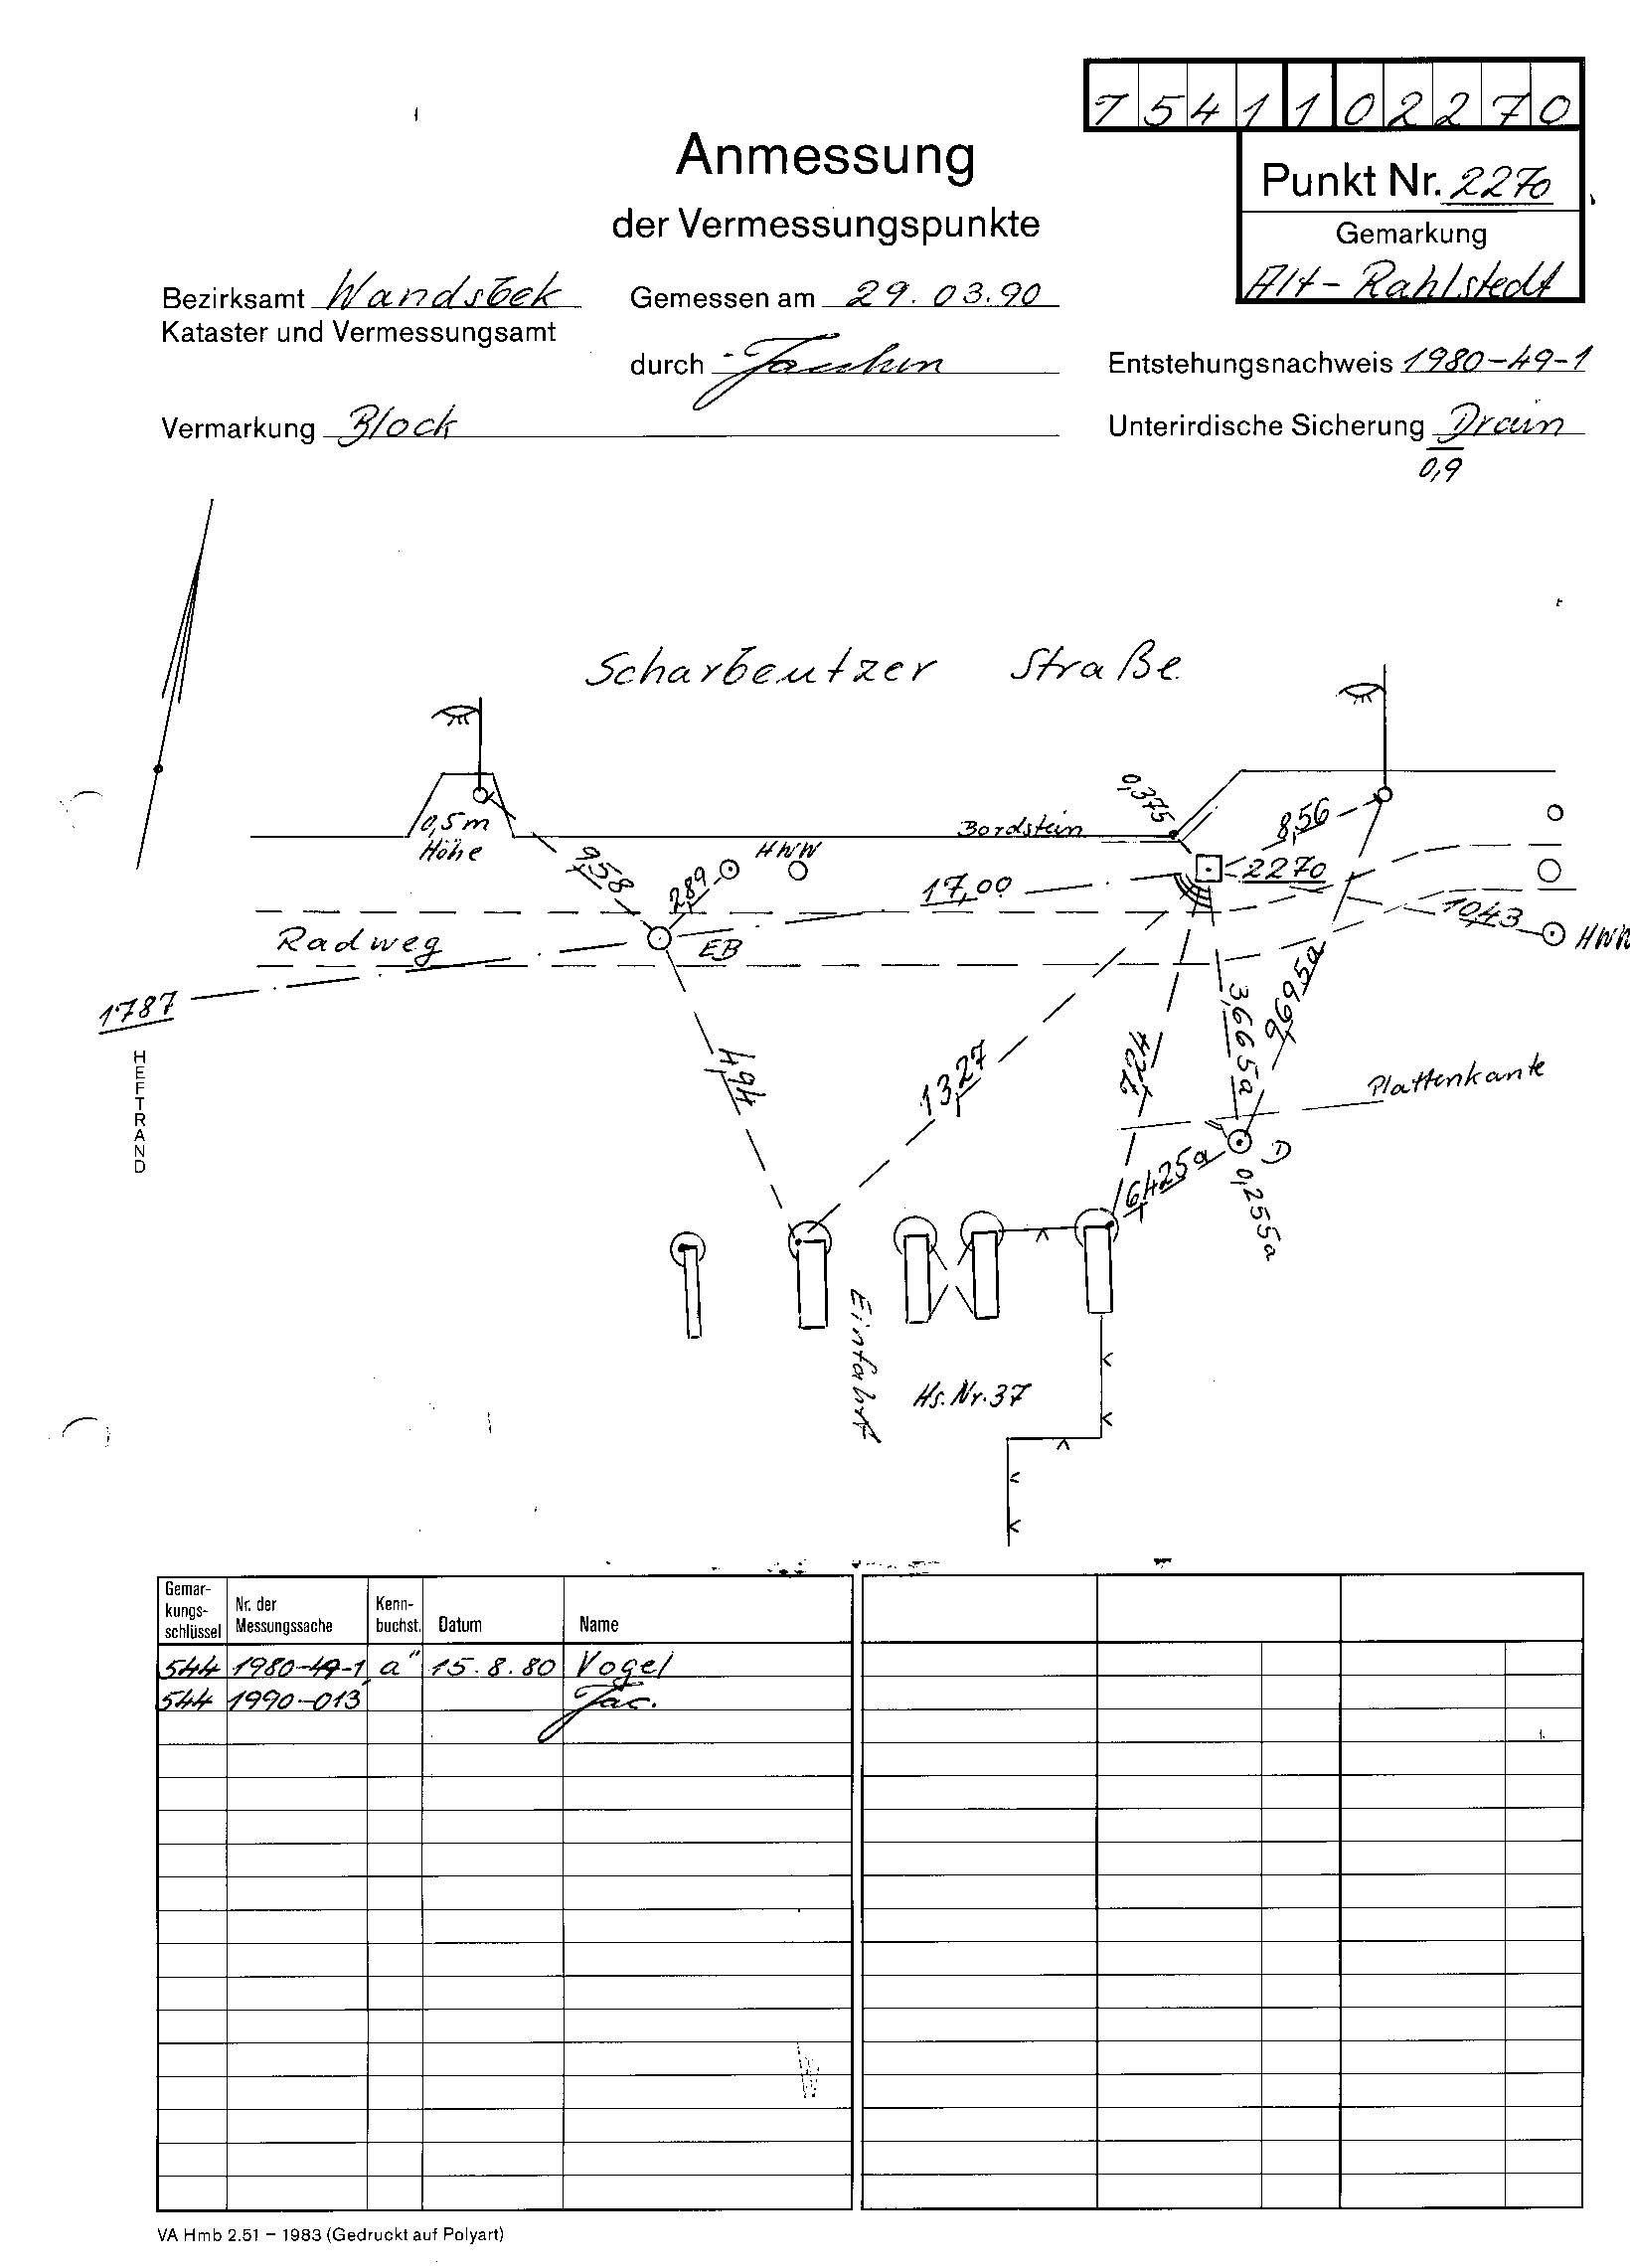 7541102270
Anmessung
der Vermessungspunkte
Punkt Nr. 2270
Gemarkung
Alt-Rahlstedt
Bezirksamt Wandsbek
Kataster und Vermessungsamt
Gemessen am 29.03.90
durch
Entstehungsnachweis 1980-49-1
Vermarkung Block
Unterirdische Sicherung Drain
0,9
Scharbeutzer Straße
0,5m
Höhe
9,58
2,89
HWW
Bordstein
0,375
8,56
2270
17,00
10,43
HWW
Radweg
EB
1787
HEFTRAND
4,94
13,27
7,24
3,665a
9,695a
Plattenkante
6,425a
D
0,255a
Einfahrt
Hs.Nr.37
Gemar-
kungs-
schlüssel
Nr. der
Messungssache
Kenn-
buchst.
Datum
Name
544 1980-49-1 a" 15.8.80 Vogel
544 1990-013 Jac.
VA Hmb 2.51 – 1983 (Gedruckt auf Polyart)